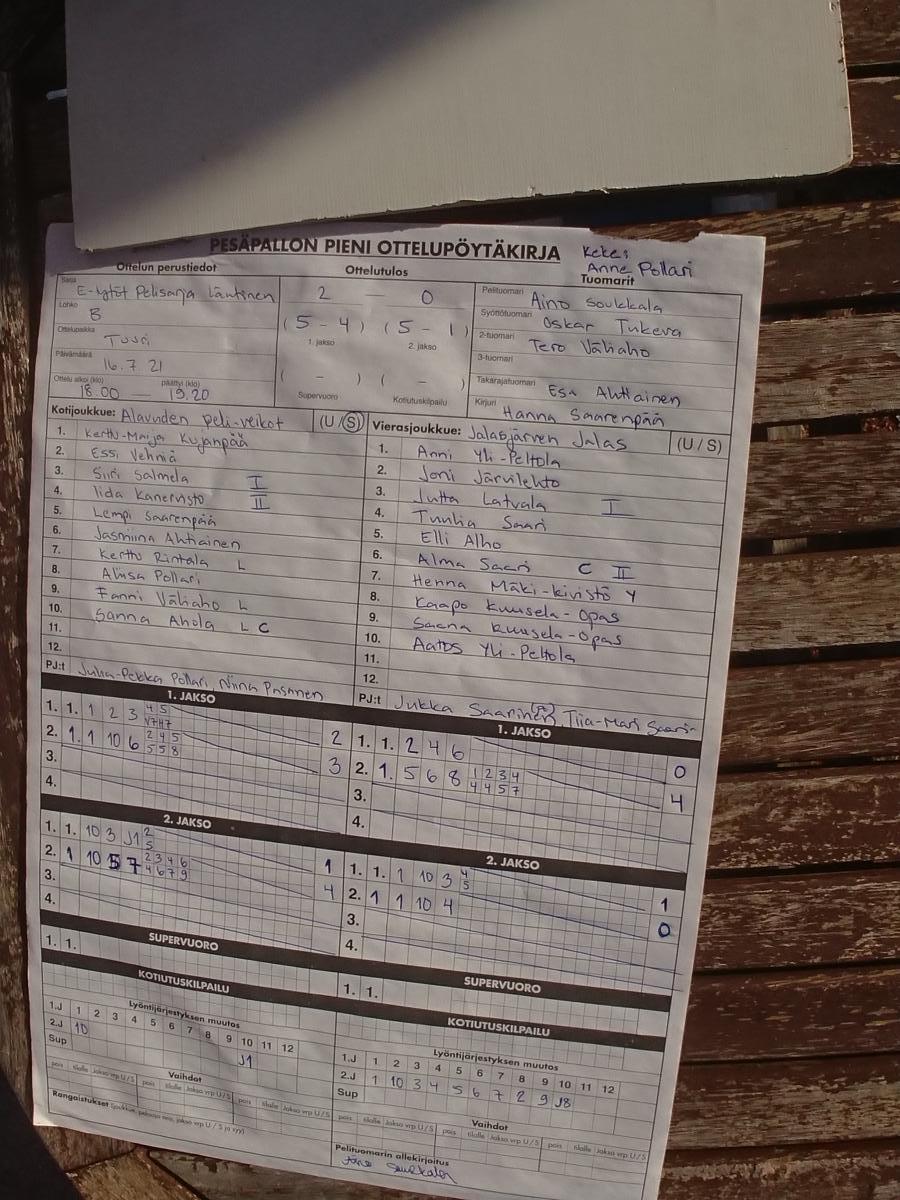 PESÄPALLON PIENI OTTELUPÖYTÄKIRJA
Anne Pollari
Ottelun perustiedot
Ottelutulos
Tuomarit
Sarja E-tytöt Pelisarja Läntinen
Lohko B
Ottelupaikka
Päivämäärä 16.7 21
Ottelu alkoi (klo) 18.00 — päättyi (klo) 19.20
2 — 0
(5 - 4) (5 - 1)
1. jakso 2. jakso
( - ) ( - )
Supervuoro Kotiutuskilpailu
Pelituomari Aino Soukkala
Syöttötuomari Oskar Tukeva
2-tuomari Tero Väliaho
3-tuomari
Takarajatuomari Esa Ahtiainen
Kirjuri Hanna Saarenpää
Kotijoukkue: Alavuden peli-veikot (U / S)
1. Kerttu-Marja Kujanpää
2. Essi Vehniä
3. Siiri Salmela I
4. Iida Kanervisto II
5. Lempi Saarenpää
6. Jasmiina Ahtiainen
7. Kerttu Rintala L
8. Aliisa Pollari
9. Fanni Väliaho L
10. Sanna Ahola L C
11.
12.
PJ:t Juha-Pekka Pollari, Niina Pasanen
Vierasjoukkue: Jalasjärven Jalas (U / S)
1. Anni Yli-Peltola
2. Joni Järvilehto
3. Jutta Latvala I
4. Tuulia Saari
5. Elli Alho
6. Alma Saari C II
7. Henna Mäki-Kivistö Y
8. Kaapo Kuusela-Opas
9. Saana Kuusela-Opas
10. Aatos Yli-Peltola
11.
12.
PJ:t Jukka Saarinen, Tiia-Mari Saari
1. JAKSO
1. 1. 1 2 3 4 5 2
2. 1. 1 10 6 2 4 5 3
5 5 8
3.
4.
1. JAKSO
1. 1. 2 4 6 0
2. 1. 5 6 8 1 2 3 4 4
4 4 5 7
3.
4.
2. JAKSO
1. 1. 10 3 J1 2 1
5
2. 1 10 5 7 2 3 4 6 4
4 6 7 9
3.
4.
2. JAKSO
1. 1. 1 10 3 4 1
5
2. 1 1 10 4 0
3.
4.
SUPERVUORO
1. 1.
SUPERVUORO
1. 1.
KOTIUTUSKILPAILU
Lyöntijärjestyksen muutos
1.J 1 2 3 4 5 6 7 8 9 10 11 12
2.J 10 J1
Sup
Vaihdot
pois tilalle Jakso vrp U/S pois tilalle Jakso vrp U/S pois tilalle Jakso vrp U/S
Rangaistukset (joukkue, pelaaja nro, jakso vrp U / S ja syy)
KOTIUTUSKILPAILU
Lyöntijärjestyksen muutos
1.J 1 2 3 4 5 6 7 8 9 10 11 12
2.J 1 10 3 4 5 6 7 2 9 J8
Sup
Vaihdot
pois tilalle Jakso vrp U/S pois tilalle Jakso vrp U/S pois tilalle Jakso vrp U/S
Pelituomarin allekirjoitus